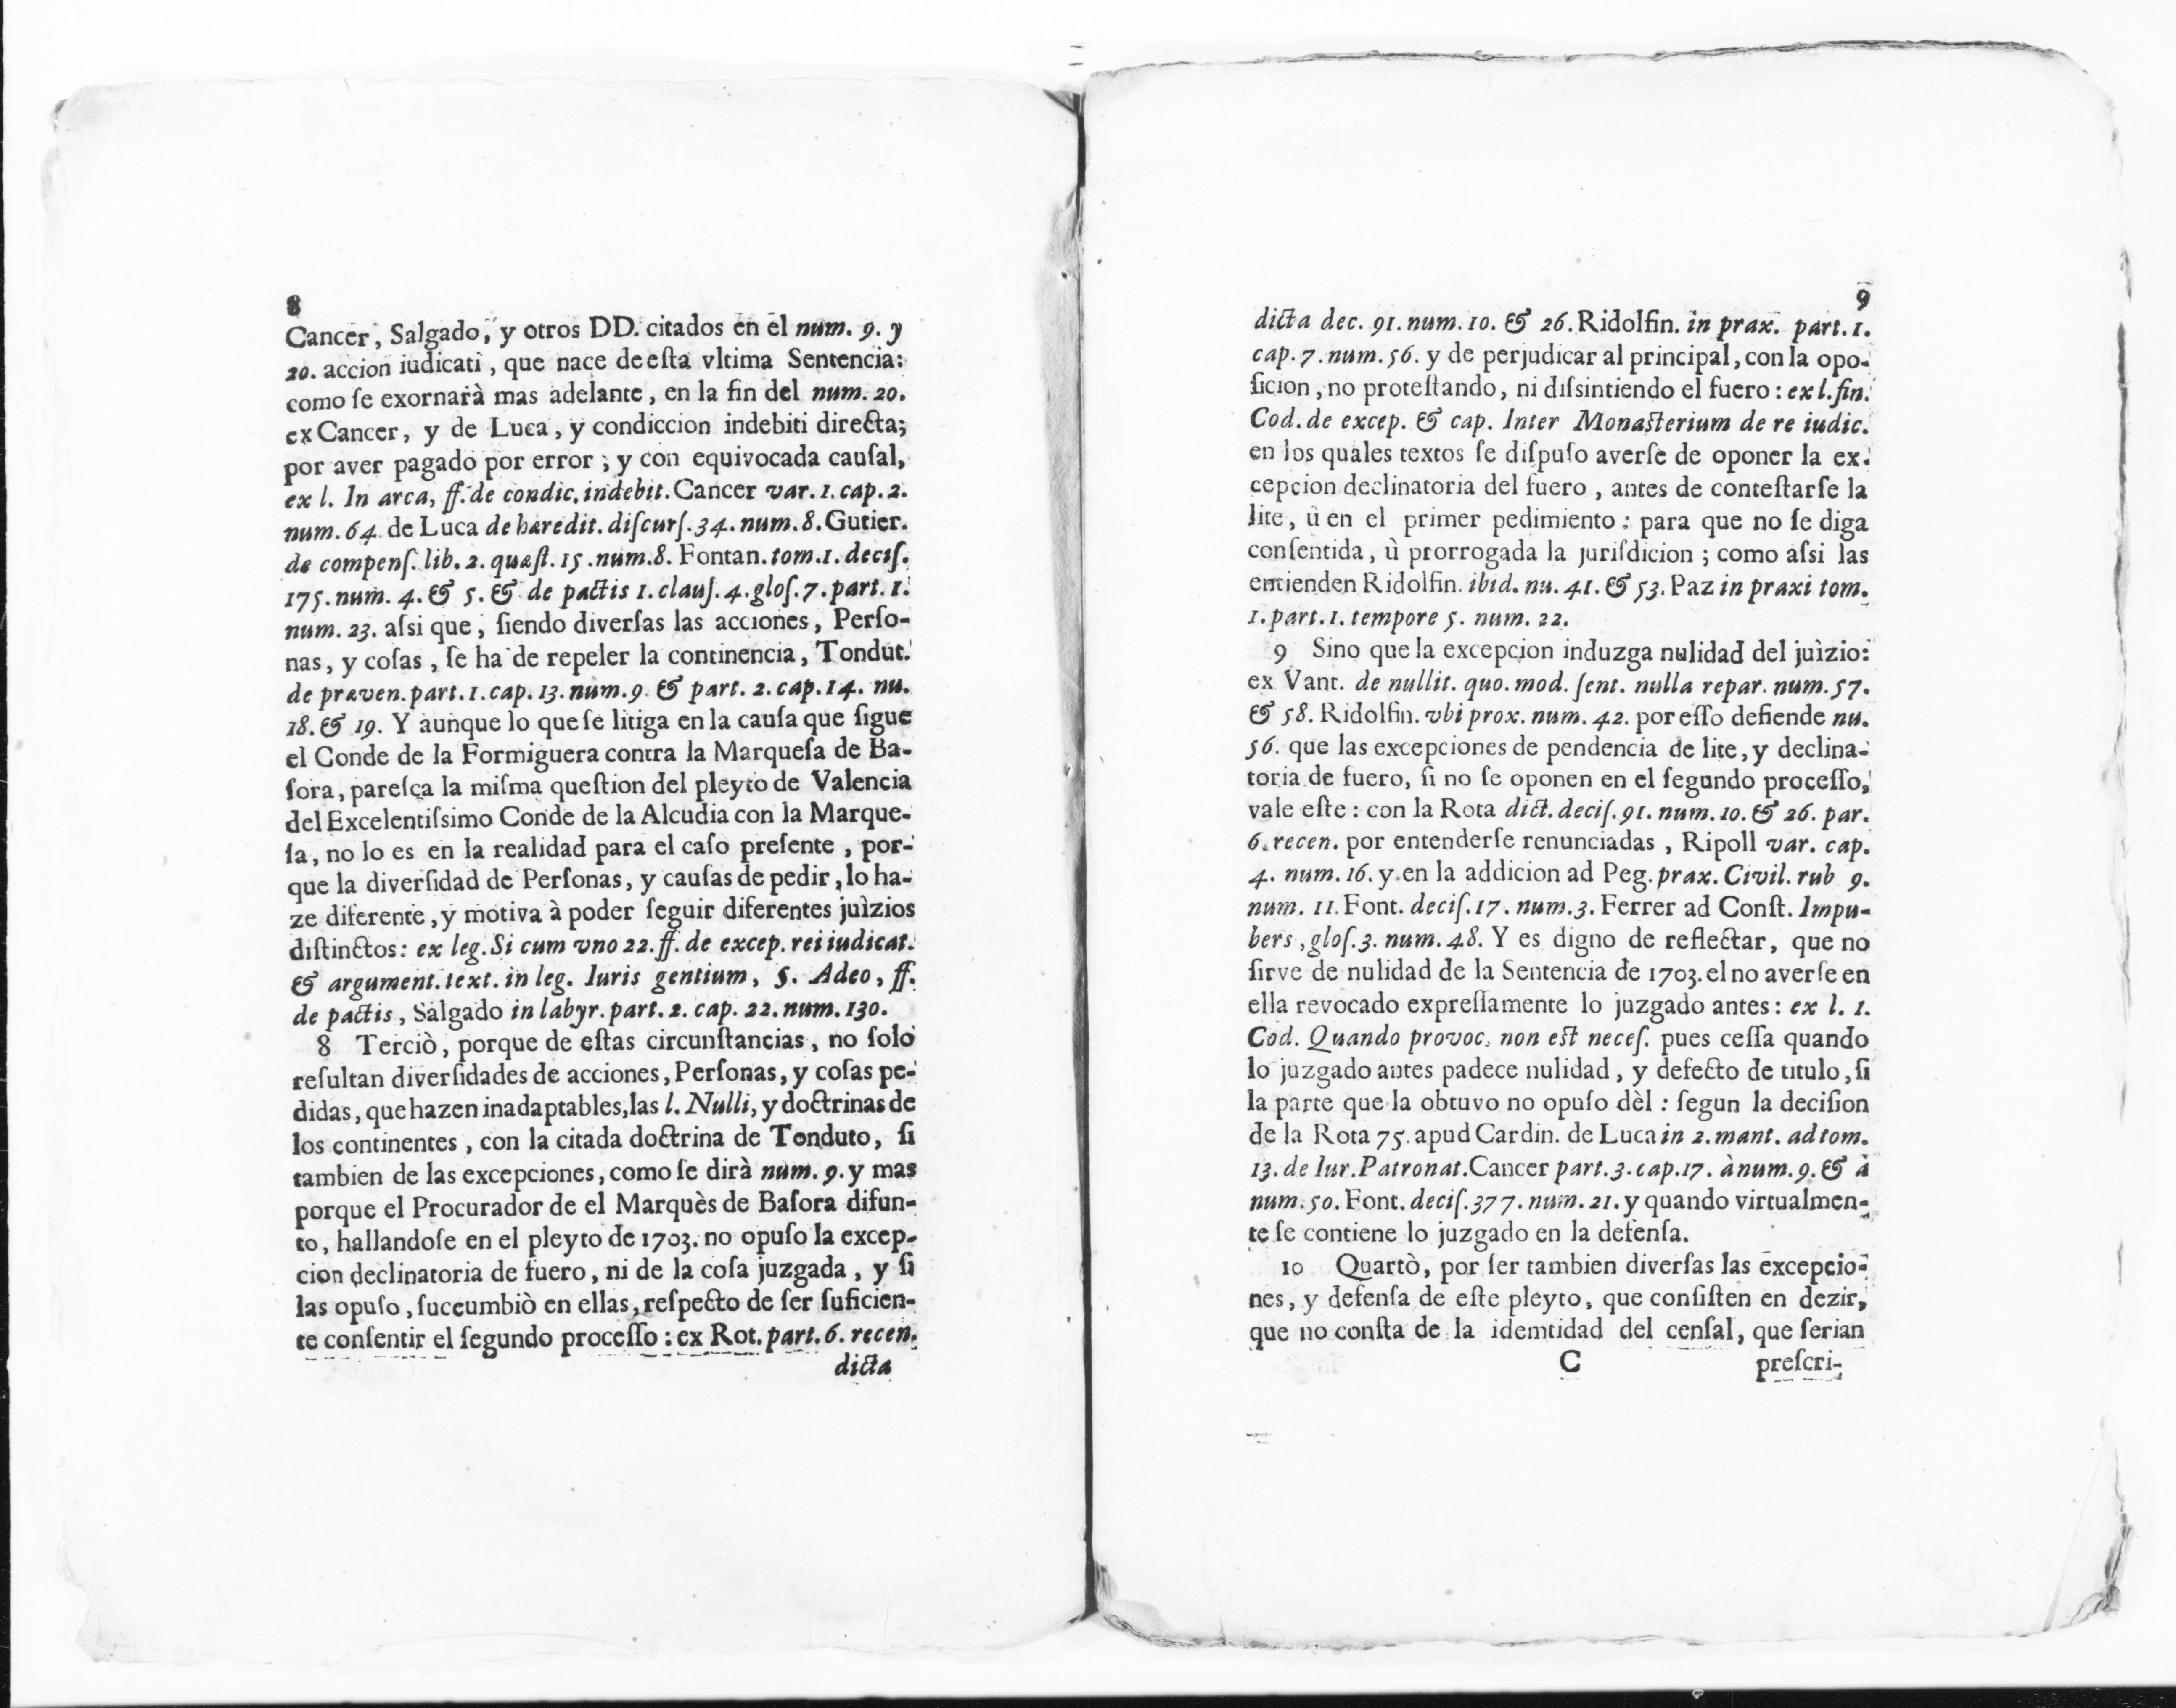 8
Cancer, Salgado, y otros DD. citados en el num. 9. y
20. accion iudicati, que nace de eſta vltima Sentencia:
como ſe exornarà mas adelante, en la fin del num. 20.
ex Cancer, y de Luca, y condiccion indebiti directa;
por aver pagado por error; y con equivocada cauſal,
ex l. In arca, ff. de condic. indebit. Cancer var. 1. cap. 2.
num. 64. de Luca de hæredit. diſcurſ. 34. num. 8. Gutier.
de compenſ. lib. 2. quæſt. 15. num. 8. Fontan. tom. 1. deciſ.
175. num. 4. & 5. & de pactis 1. clauſ. 4. gloſ. 7. part. 1.
num. 23. aſsi que, ſiendo diverſas las acciones, Perſo-
nas, y coſas, ſe ha de repeler la continencia, Tondut.
de præven. part. 1. cap. 13. num. 9. & part. 2. cap. 14. nu.
18. & 19. Y aunque lo que ſe litiga en la cauſa que ſigue
el Conde de la Formiguera contra la Marqueſa de Ba-
ſora, pareſca la miſma queſtion del pleyto de Valencia
del Excelentiſsimo Conde de la Alcudia con la Marque-
ſa, no lo es en la realidad para el caſo preſente, por-
que la diverſidad de Perſonas, y cauſas de pedir, lo ha-
ze diferente, y motiva à poder ſeguir diferentes juìzios
diſtinctos: ex leg. Si cum vno 22. ff. de excep. rei iudicat.
& argument. text. in leg. Iuris gentium, §. Adeo, ff.
de pactis, Salgado in labyr. part. 2. cap. 22. num. 130.
8 Terciò, porque de eſtas circunſtancias, no ſolo
reſultan diverſidades de acciones, Perſonas, y coſas pe-
didas, que hazen inadaptables, las l. Nulli, y doctrinas de
los continentes, con la citada doctrina de Tonduto, ſi
tambien de las excepciones, como ſe dirà num. 9. y mas
porque el Procurador de el Marquès de Baſora difun-
to, hallandoſe en el pleyto de 1703. no opuſo la excep-
cion declinatoria de fuero, ni de la coſa juzgada, y ſi
las opuſo, ſuccumbiò en ellas, reſpecto de ſer ſuficien-
te conſentir el ſegundo proceſſo: ex Rot. part. 6. recen.
dicta
9
dicta dec. 91. num. 10. & 26. Ridolfin. in prax. part. 1.
cap. 7. num. 56. y de perjudicar al principal, con la opo-
ſicion, no proteſtando, ni diſsintiendo el fuero: ex l. fin.
Cod. de excep. & cap. Inter Monaſterium de re iudic.
en los quales textos ſe diſpuſo averſe de oponer la ex-
cepcion declinatoria del fuero, antes de conteſtarſe la
lite, ù en el primer pedimiento: para que no ſe diga
conſentida, ù prorrogada la juriſdicion; como aſsi las
entienden Ridolfin. ibid. nu. 41. & 53. Paz in praxi tom.
1. part. 1. tempore 5. num. 22.
9 Sino que la excepcion induzga nulidad del juìzio:
ex Vant. de nullit. quo. mod. ſent. nulla repar. num. 57.
& 58. Ridolfin. vbi prox. num. 42. por eſſo defiende nu.
56. que las excepciones de pendencia de lite, y declina-
toria de fuero, ſi no ſe oponen en el ſegundo proceſſo,
vale eſte: con la Rota dict. deciſ. 91. num. 10. & 26. par.
6. recen. por entenderſe renunciadas, Ripoll var. cap.
4. num. 16. y en la addicion ad Peg. prax. Civil. rub 9.
num. 11. Font. deciſ. 17. num. 3. Ferrer ad Conſt. Impu-
bers, gloſ. 3. num. 48. Y es digno de reflectar, que no
ſirve de nulidad de la Sentencia de 1703. el no averſe en
ella revocado expreſſamente lo juzgado antes: ex l. 1.
Cod. Quando provoc. non eſt neceſ. pues ceſſa quando
lo juzgado antes padece nulidad, y defecto de titulo, ſi
la parte que la obtuvo no opuſo dèl: ſegun la deciſion
de la Rota 75. apud Cardin. de Luca in 2. mant. ad tom.
13. de Iur. Patronat. Cancer part. 3. cap. 17. à num. 9. & à
num. 50. Font. deciſ. 377. num. 21. y quando virtualmen-
te ſe contiene lo juzgado en la defenſa.
10 Quartò, por ſer tambien diverſas las excepcio-
nes, y defenſa de eſte pleyto, que conſiſten en dezir,
que no conſta de la idemtidad del cenſal, que ſerian
C preſcri-